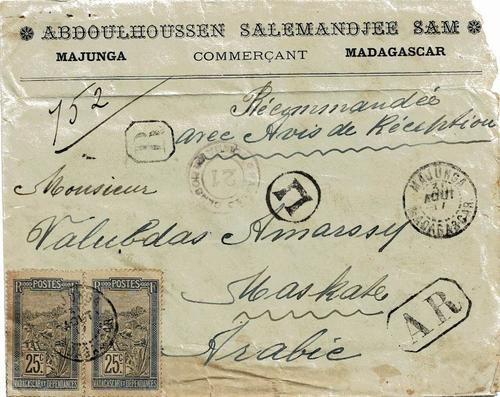 ABDOULHOUSSEN SALEMANDJEE SAM
MAJUNGA COMMERÇANT MADAGASCAR
152
Récommandée
R
avec Avis de Réception
21
Monsieur
MAJUNGA
31
AOUT
MADAGASCAR
Valubdas Amarssy
Maskate
AR
Arabic
RF POSTES
25c
MADAGASCAR ET DEPENDANCES
POSTES
25c
MADAGASCAR ET DEPENDANCES